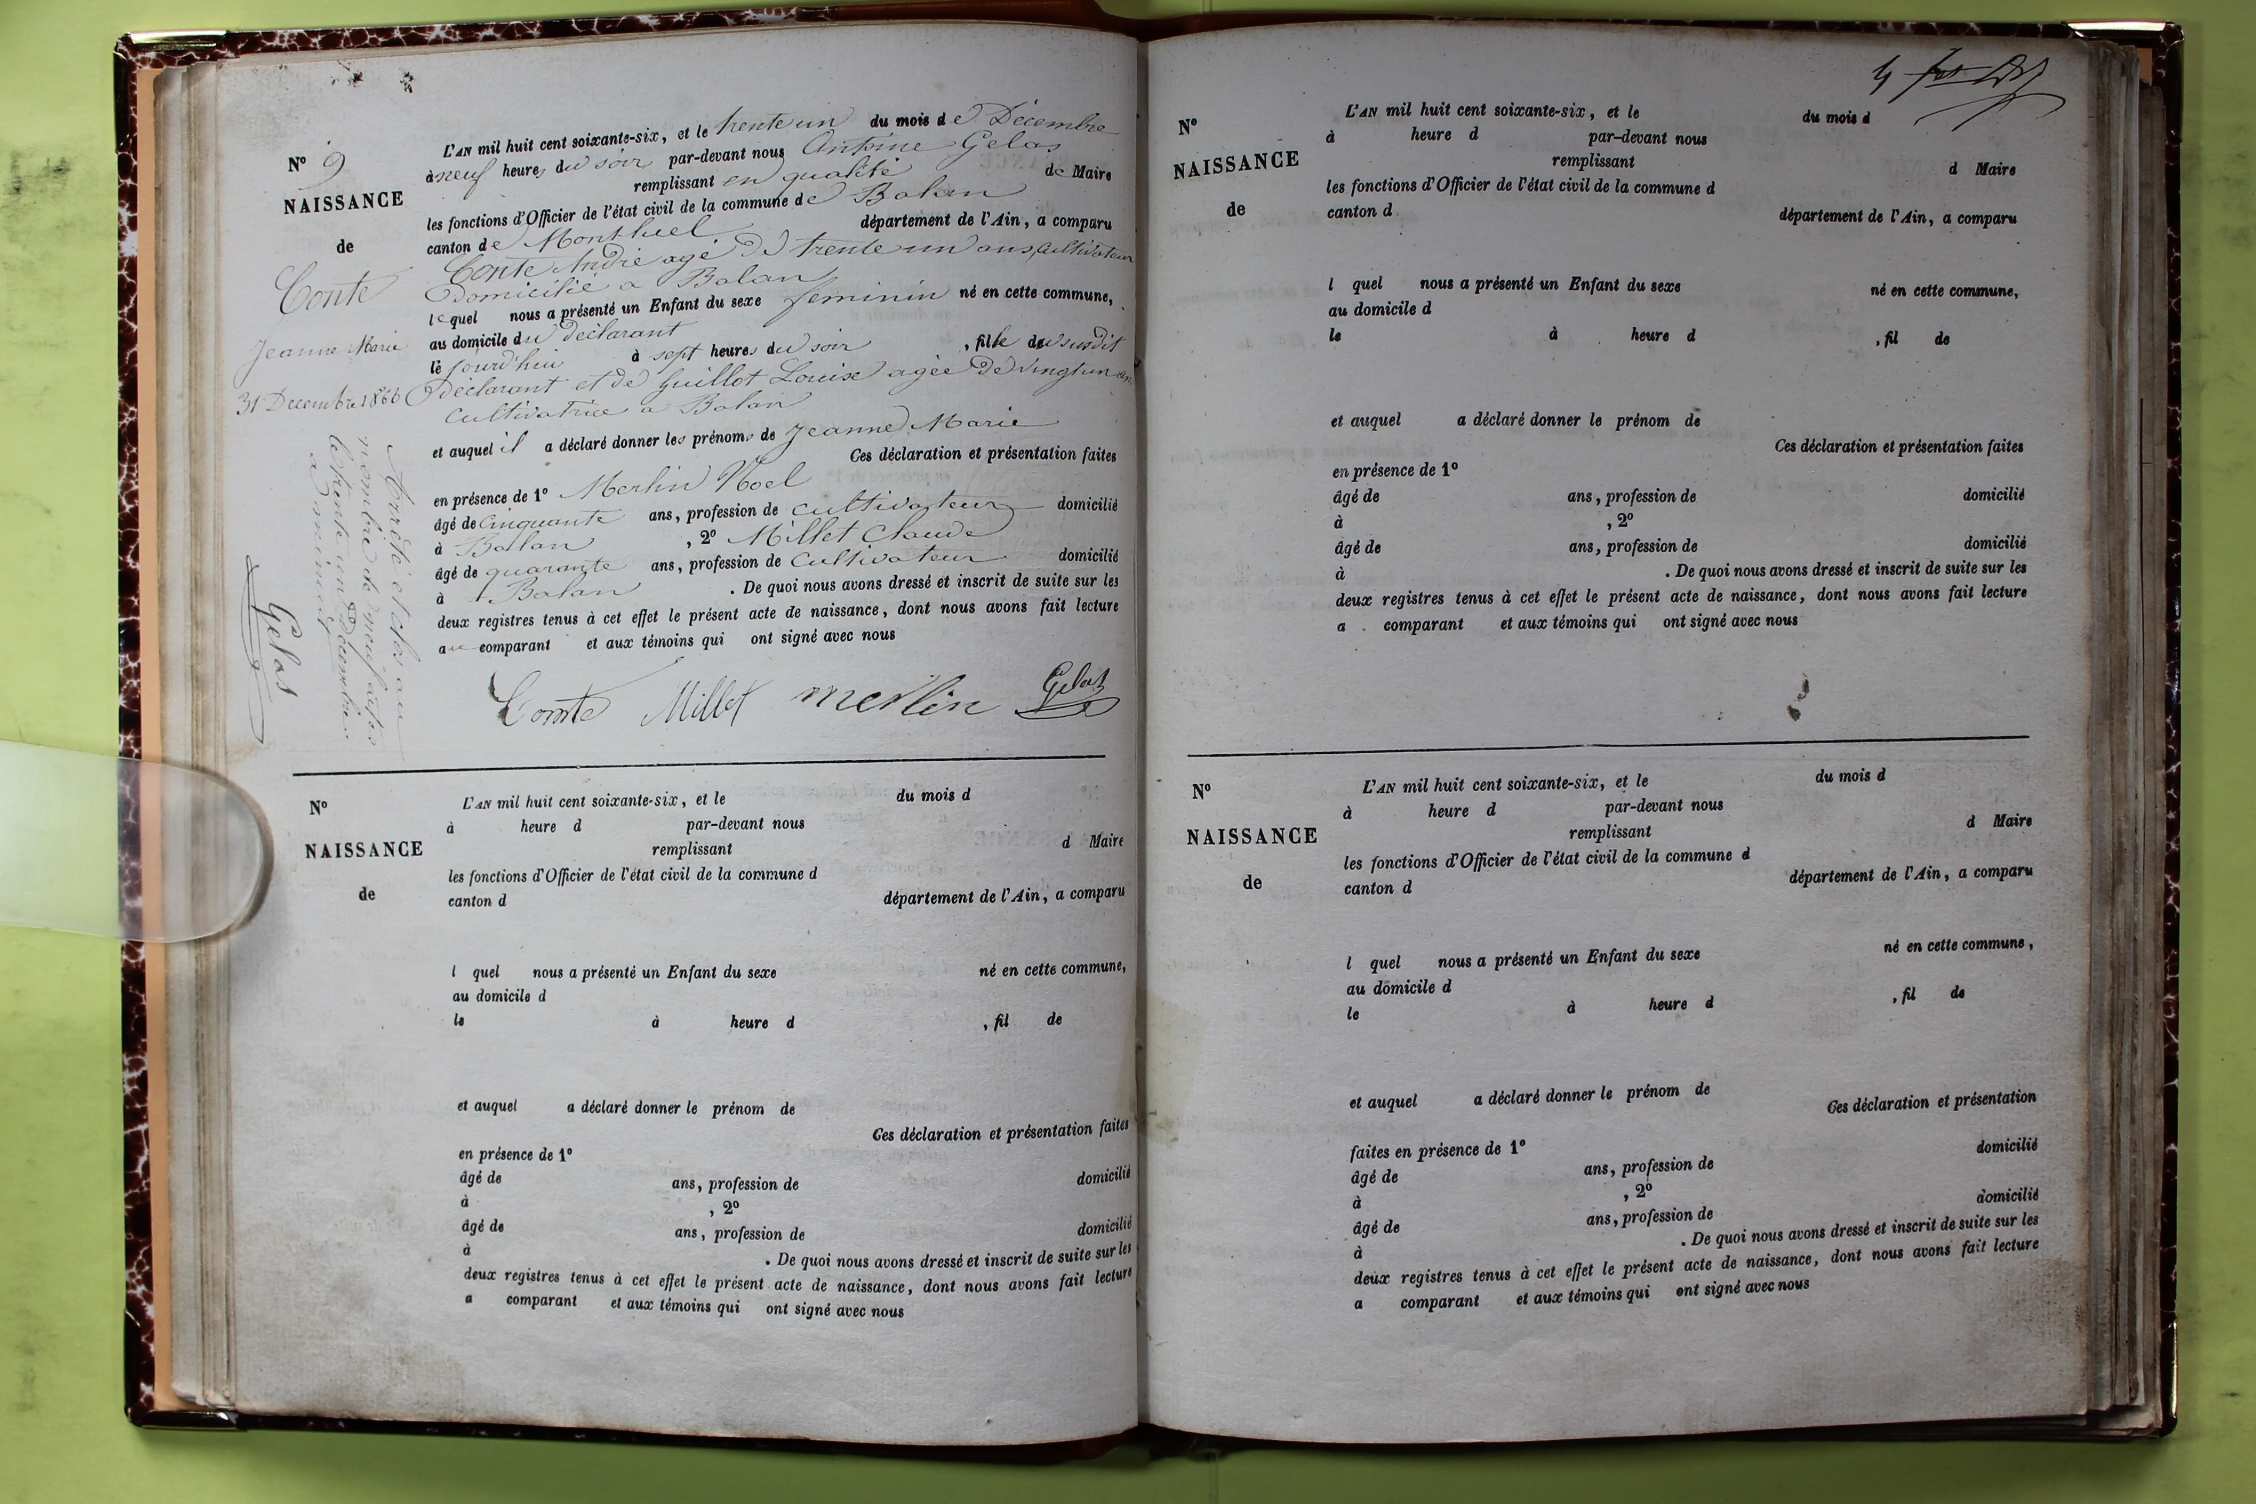 N° 9
NAISSANCE
de
Conte
Jeanne Marie
31 Decembre 1866
L'AN mil huit cent soixante-six, et le trente un du mois de Décembre
à neuf heures du soir par-devant nous Antoine Gelas
remplissant en qualité de Maire
les fonctions d'Officier de l'état civil de la commune de Balan
canton de Montluel département de l'Ain, a comparu
Conte André agé de trente un ans, cultivateur
Domicilié a Balan
lequel nous a présenté un Enfant du sexe feminin né en cette commune,
au domicile du déclarant
le jourd'hui à sept heures du soir, fille du susdit
Déclarant et de Guillot Louise agée de vingt un an
cultivatrice a Balan
et auquel il a déclaré donner les prénoms de Jeanne Marie
Ces déclaration et présentation faites
en présence de 1° Merlin Noel
âgé de cinquante ans, profession de cultivateur domicilié
à Balan, 2° Millet Claude
âgé de quarante ans, profession de cultivateur domicilié
à Balan. De quoi nous avons dressé et inscrit de suite sur les
deux registres tenus à cet effet le présent acte de naissance, dont nous avons fait lecture
au comparant et aux témoins qui ont signé avec nous
Comte Millet merlin Gelas
Arrêté et clos au
nombre de neuf actes
le trente un Décembre
a minuit
Gelas
N°
NAISSANCE
de
L'AN mil huit cent soixante-six, et le du mois d
à heure d par-devant nous
remplissant d Maire
les fonctions d'Officier de l'état civil de la commune d
canton d département de l'Ain, a comparu
l quel nous a présenté un Enfant du sexe né en cette commune,
au domicile d
le à heure d , fil de
et auquel a déclaré donner le prénom de
Ces déclaration et présentation faites
en présence de 1°
âgé de ans, profession de domicilié
à , 2°
âgé de ans, profession de domicilié
à . De quoi nous avons dressé et inscrit de suite sur les
deux registres tenus à cet effet le présent acte de naissance, dont nous avons fait lecture
a comparant et aux témoins qui ont signé avec nous
4
N°
NAISSANCE
de
L'AN mil huit cent soixante-six, et le du mois d
à heure d par-devant nous
remplissant d Maire
les fonctions d'Officier de l'état civil de la commune d
canton d département de l'Ain, a comparu
l quel nous a présenté un Enfant du sexe né en cette commune,
au domicile d
le à heure d , fil de
et auquel a déclaré donner le prénom de
Ces déclaration et présentation faites
en présence de 1°
âgé de ans, profession de domicilié
à , 2°
âgé de ans, profession de domicilié
à . De quoi nous avons dressé et inscrit de suite sur les
deux registres tenus à cet effet le présent acte de naissance, dont nous avons fait lecture
a comparant et aux témoins qui ont signé avec nous
N°
NAISSANCE
de
L'AN mil huit cent soixante-six, et le du mois d
à heure d par-devant nous
remplissant d Maire
les fonctions d'Officier de l'état civil de la commune d
canton d département de l'Ain, a comparu
l quel nous a présenté un Enfant du sexe né en cette commune,
au domicile d
le à heure d , fil de
et auquel a déclaré donner le prénom de
Ces déclaration et présentation
faites en présence de 1° domicilié
âgé de ans, profession de
à , 2° domicilié
âgé de ans, profession de
à . De quoi nous avons dressé et inscrit de suite sur les
deux registres tenus à cet effet le présent acte de naissance, dont nous avons fait lecture
a comparant et aux témoins qui ont signé avec nous